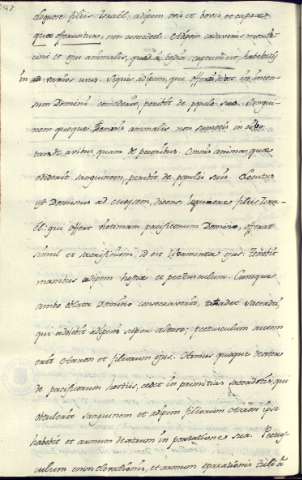 loquere filiis Israël, adipem ovis et bovis et caprae
non comedetis. Adipem cadaveris
et ejus animalis, quod à bestia captum est, habebitis
in varios usus. Siquis adipem, qui offerri debet in incen-
sum Domini comederit, peribit de populo suo. Sangui-
nem quoque animalis non sumetis in
tam de avibus quam de pecoribus. Omnis anima, quae
ederit sanguinem, peribit de populis suis. Locutus-
que est Dominus ad Moysen, dicens: loquere filiis Isra-
el: qui offert victimam pacificorum Domino, offerat
simul et sacrificium, id est libamenta ejus. Tenebit
manibus adipem hostiae et pectusculum. Cumque
ambo oblata Domino consecraverit, tradet sacerdoti,
qui adolebit adipem super altare; pectusculum autem
erit Aaron et filiorum ejus. Armus quoque dexter
de pacificorum hostiis, cedet in primitias sacerdotis, qui
obtulerit sanguinem et adipem filiorum Aaron ipse
habebit et armum dextrum in portione sua. Pectus-
culum enim elevationis, et armum separationis tuli à